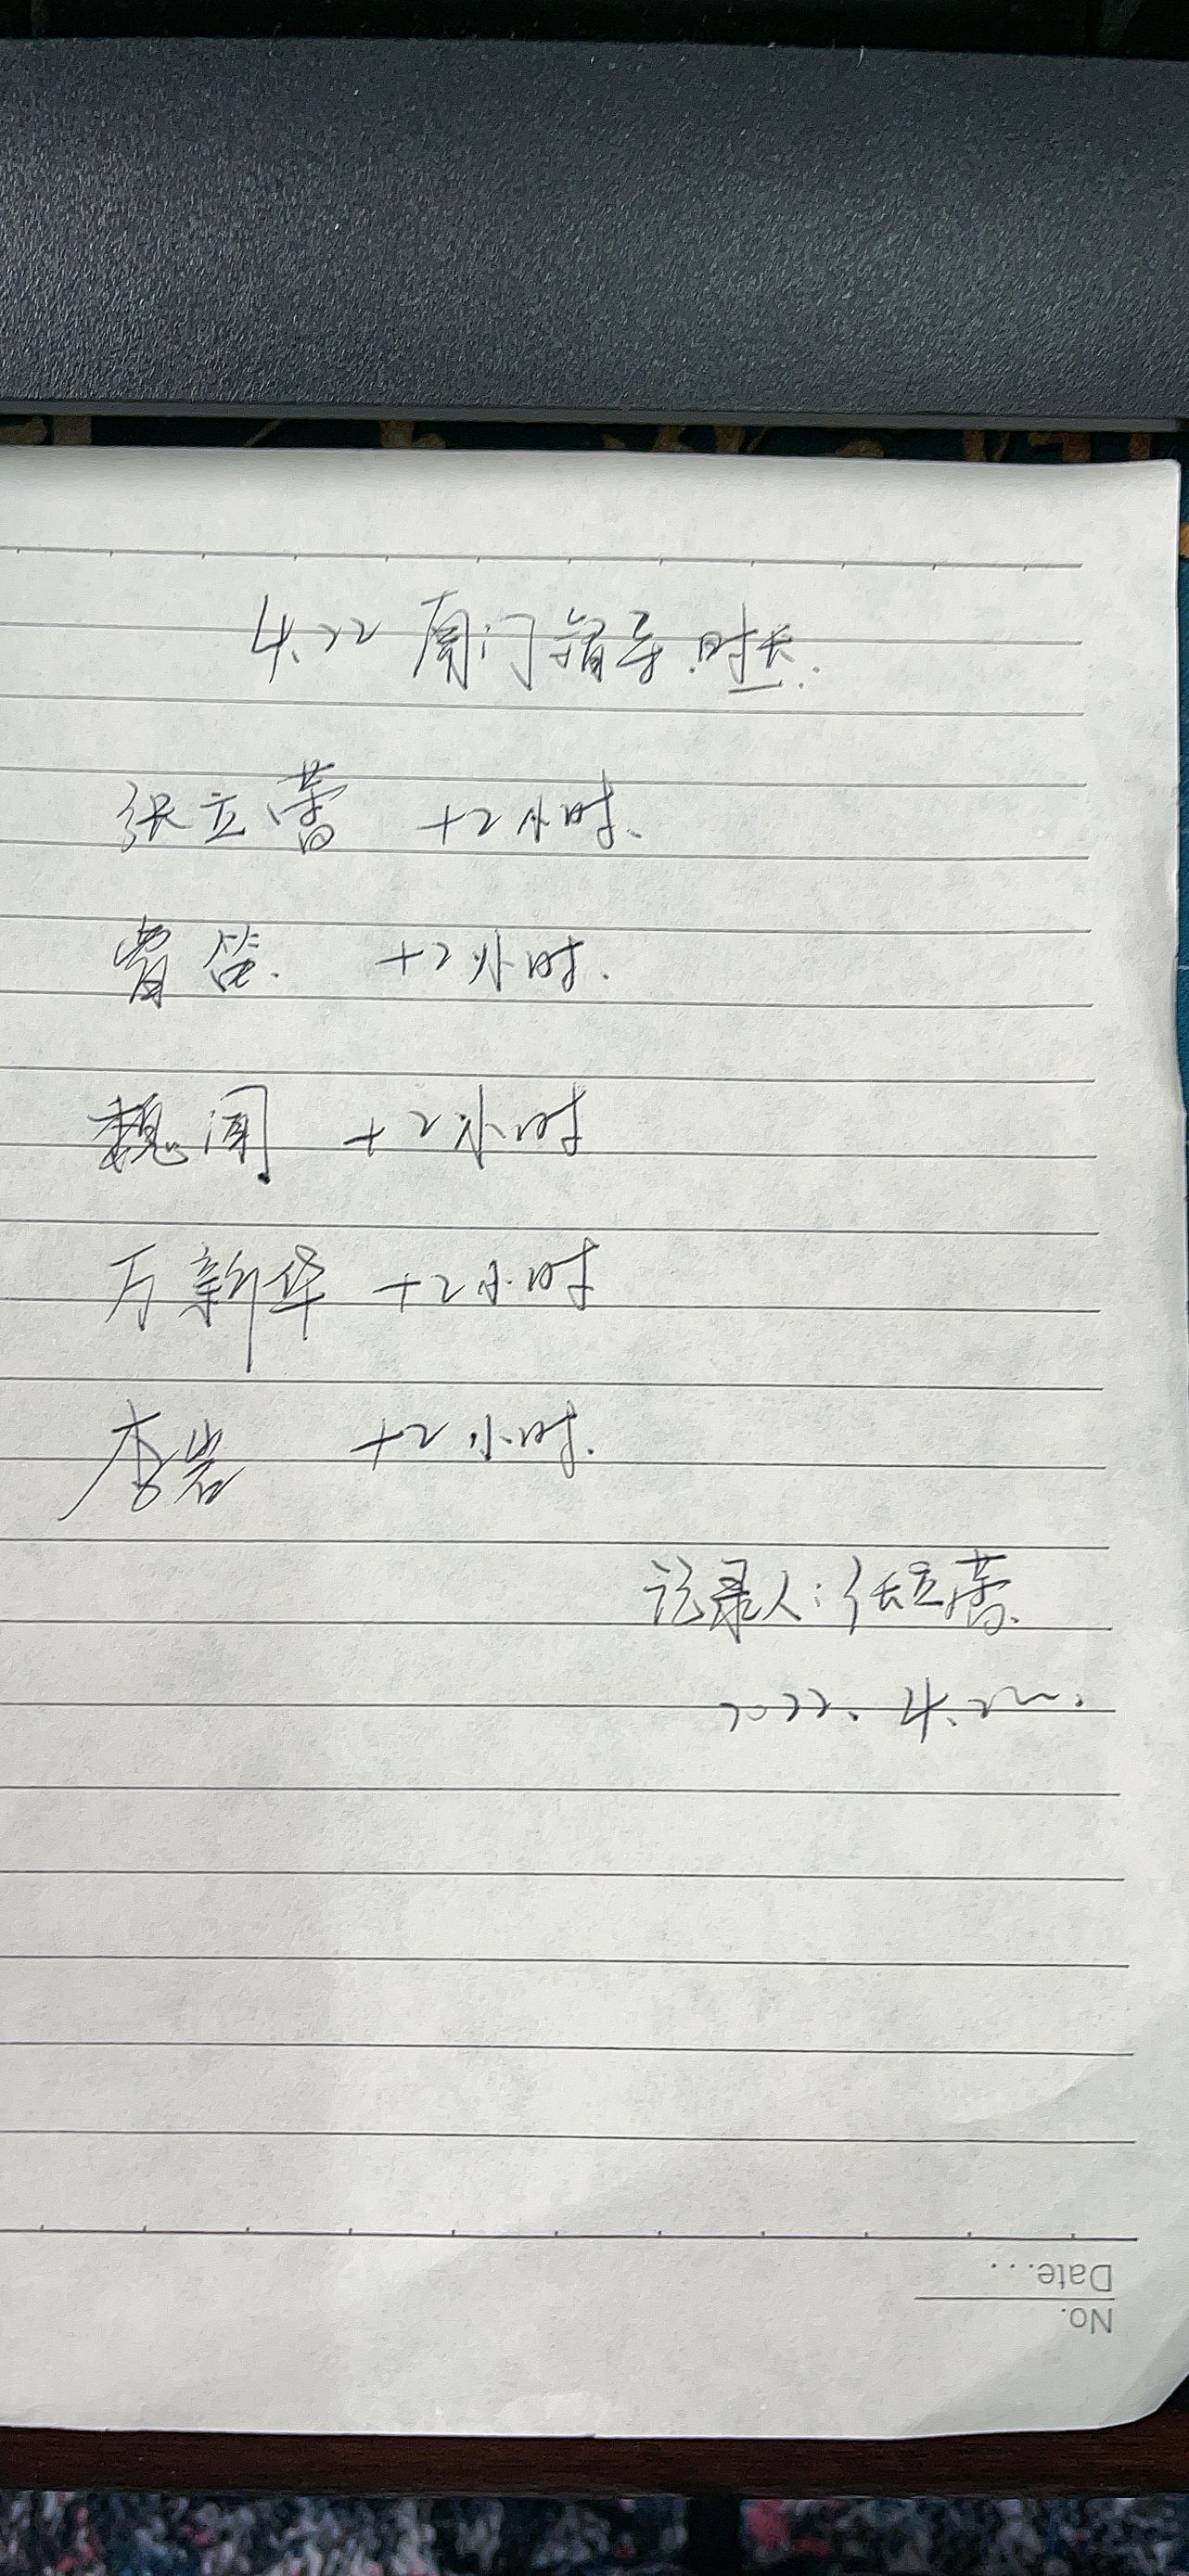 4.22 厦门指导时长.
张立蕾 +2小时.
+2小时.
魏闻 +2小时
万新华 +2小时
李岩 +2小时.
记录人: 张立蕾.
2022. 4.22.
Date...
No.